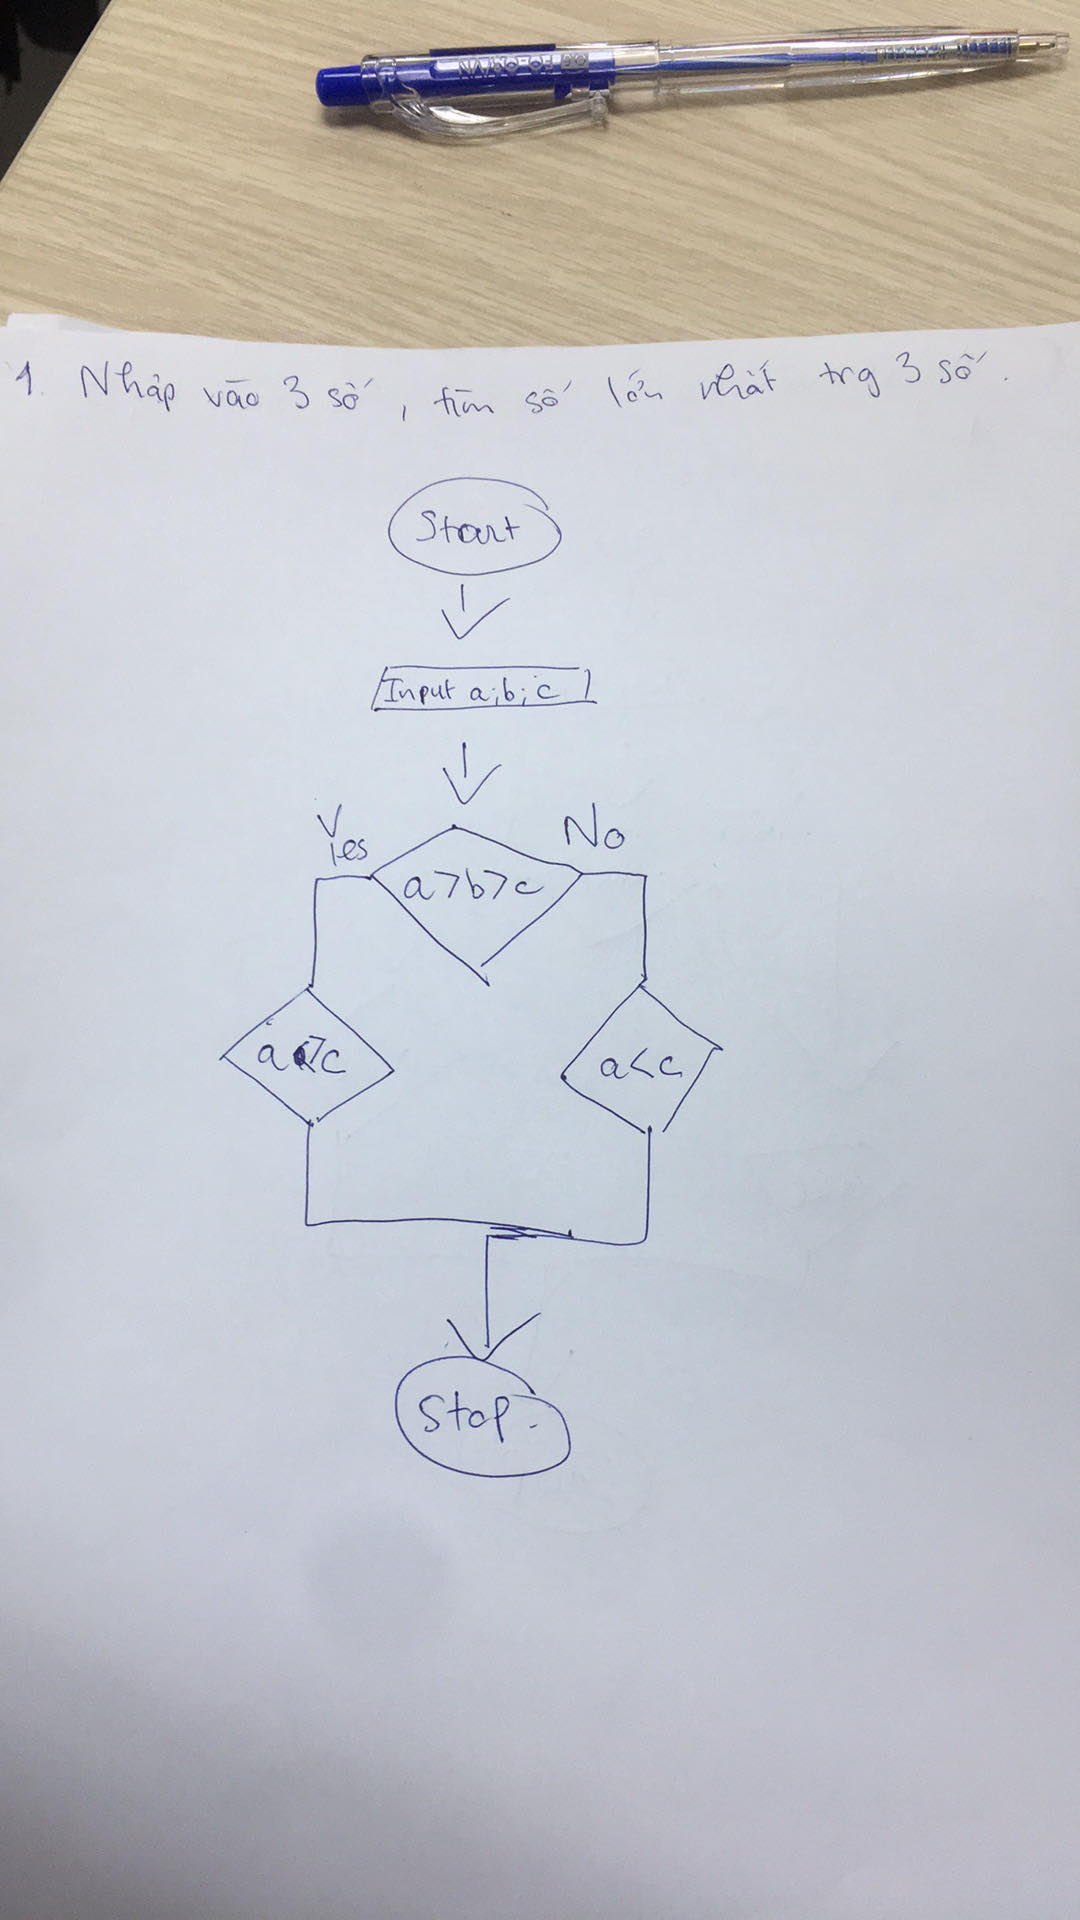 1. Nhập vào 3 số, tìm số lớn nhất trg 3 số.
Start
Input a;b;c
Yes
No
a>b>c
a>c
a<c
Stop.